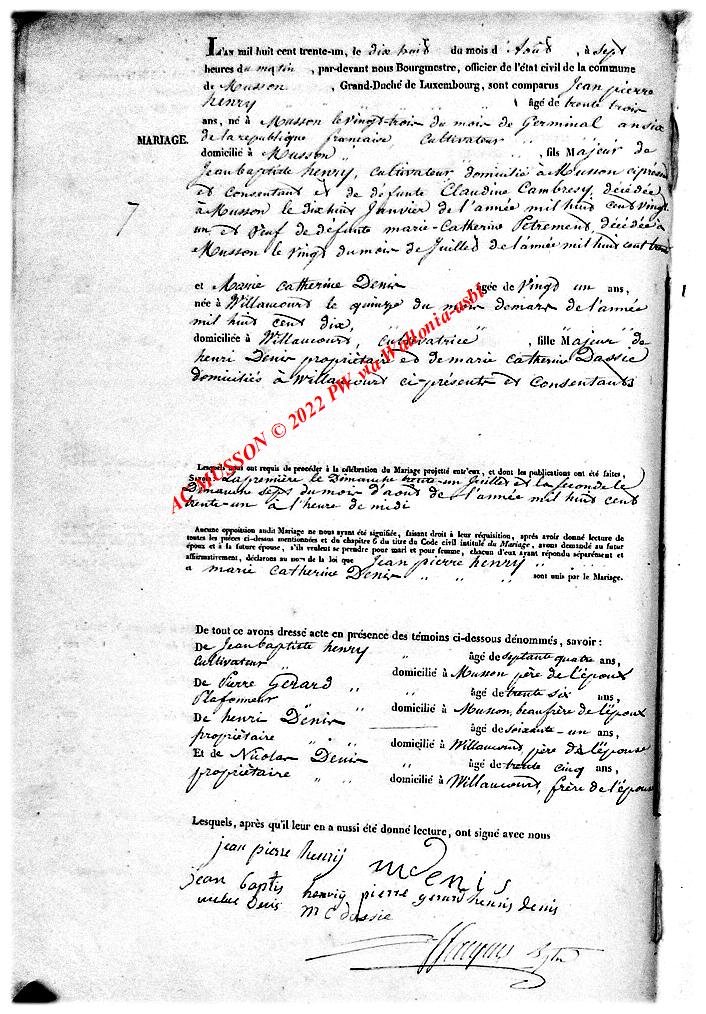 L'an mil huit cent trente-un, le dix huit du mois d'Août, à sept
heures du matin, par-devant nous Bourgmestre, officier de l'état civil de la commune
de Musson, Grand-Duché de Luxembourg, sont comparus Jean pierre
henry " " " " âgé de trente trois
ans, né à Musson le vingt-trois du mois de Germinal an six
MARIAGE.
de la republique francaise, Cultivateur "
domicilié à Musson " " " , fils Majeur de
Jean baptiste henry, Cultivateur domicilié à Musson ci présent
et Consentant et de défunte Claudine Cambresy, décédée
7
à Musson le dix huit Janvier de l'année mil huit cent vingt
un et Veuf de défunte marie-Catherine Petrement, décédée à
Musson le vingt du mois de Juillet de l'année mil huit cent trente
et Marie Catherine Denis âgée de vingt un ans,
née à Willancourt le quinze du mois de mars de l'année
mil huit cent dix, "
domiciliée à Willancourt, Cultivatrice " , fille "Majeur" de
henri Denis propriétaire et de marie Catherine Dassie
domiciliés à Willancourt ci-présents et Consentants
AC MUSSON © 2022 PW via Wallonia-asbl
Lesquels nous ont requis de procéder à la célébration du Mariage projetté entr'eux, et dont les publications ont été faites,
Savoir La première le Dimanche trente-un Juillet et la seconde le
Dimanche sept du mois d'aout de l'année mil huit cent
trente-un à l'heure de midi
Aucune opposition audit Mariage ne nous ayant été signifiée, faisant droit à leur réquisition, après avoir donné lecture de
toutes les pièces ci-dessus mentionnées et du chapitre 6 du titre du Code civil intitulé du Mariage, avons demandé au futur
époux et à la future épouse, s'ils veulent se prendre pour mari et pour femme, chacun d'eux ayant répondu séparément et
affirmativement, déclarons au nom de la loi que Jean pierre henry " "
a marie Catherine Denis " " " sont unis par le Mariage.
De tout ce avons dressé acte en présence des témoins ci-dessous dénommés, savoir :
De Jean baptiste henry " âgé de septante quatre ans,
Cultivateur " domicilié à Musson père de l'époux
De Pierre Gérard " " âgé de trente six ans,
Plafonneur " domicilié à Musson, beau frère de l'époux
De henri Denis âgé de soixante-un ans,
propriétaire " " domicilié à Willancourt, père de l'épouse
Et de Nicolas Denis " âgé de trente cinq ans,
propriétaire " " domicilié à Willancourt, frère de l'épouse
Lesquels, après qu'il leur en a aussi été donné lecture, ont signé avec nous
jean pierre henrÿ m Denis
jean baptis henriy pierre gerard henris denis
Denis m C dassie